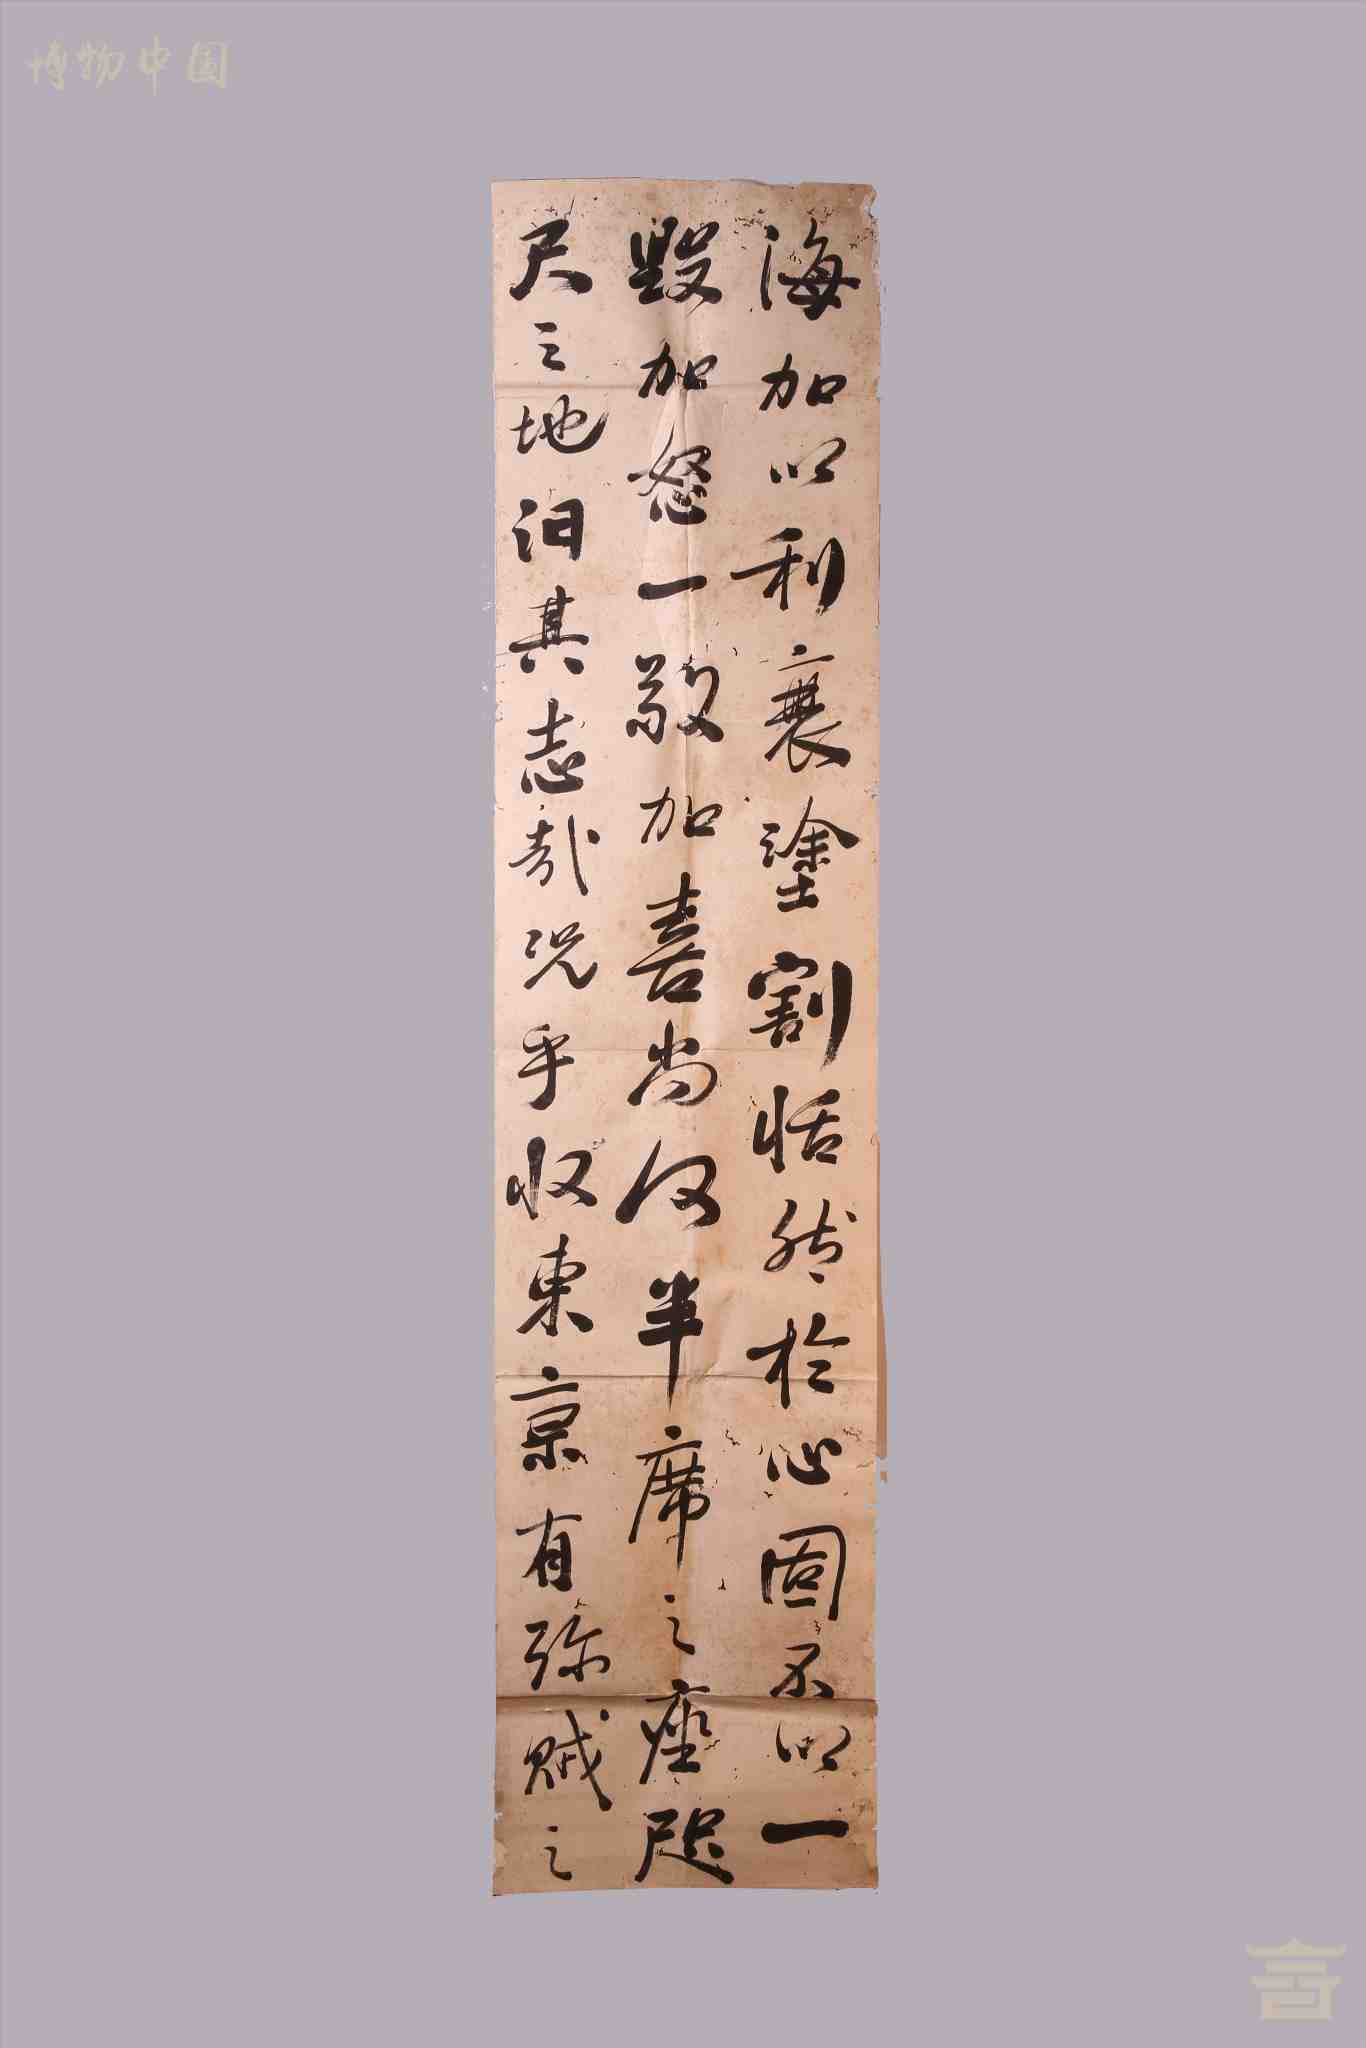 博物中国
海加以利衰塗割恬然於心固不以一
毀加怒一敬加喜尚何半席之座咫
尺之地汩其志哉況乎收東京有殄賊之